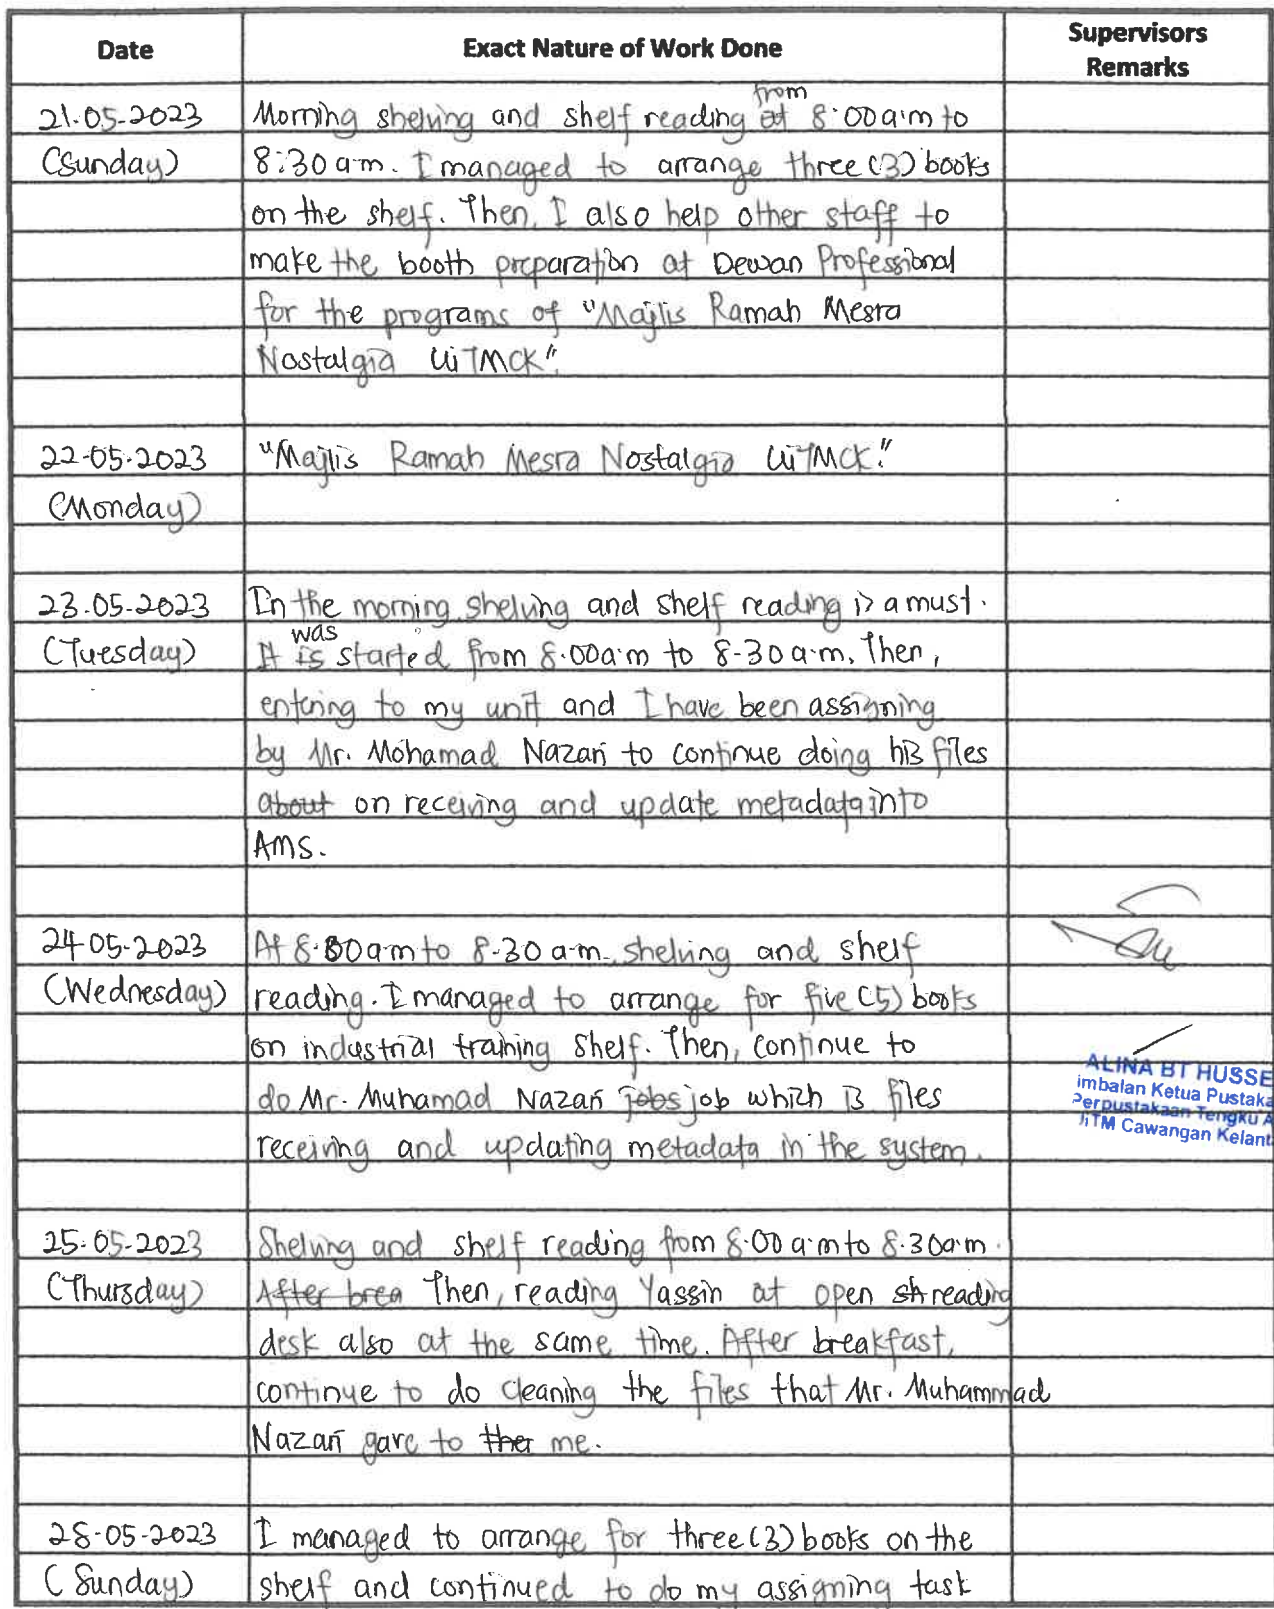 Date Exact Nature of Work Done Supervisors Remarks
21-05-2023 Morning shelving and shelf reading at from 8:00 a.m to
(Sunday) 8:30 a.m. I managed to arrange three (3) books
on the shelf. Then, I also help other staff to
make the booth preparation at Dewan Professional
for the programs of "Majlis Ramah Mesra
Nostalgia UiTMCK".
22-05-2023 "Majlis Ramah Mesra Nostalgia UiTMCK."
(Monday)
23-05-2023 In the morning, shelving and shelf reading is a must.
(Tuesday) It is was started from 8.00 a.m to 8-30 a.m. Then,
entering to my unit and I have been assigning
by Mr. Mohamad Nazari to continue doing his files
about on receiving and update metadata into
AMS.
24-05-2023 At 8.00 a.m to 8-30 a.m, shelving and shelf
(Wednesday) reading. I managed to arrange for five (5) books
on industrial training shelf. Then, continue to
do Mr. Muhamad Nazari jobs job which is files
receiving and updating metadata in the system.
ALINA BT HUSSE
imbalan Ketua Pustaka
Perpustakaan Tengku A
iTM Cawangan Kelant
25-05-2023 Shelving and shelf reading from 8.00 a.m to 8.30 a.m.
(Thursday) After brea Then, reading Yassin at open sh reading
desk also at the same time. After breakfast,
continue to do cleaning the files that Mr. Muhammad
Nazari gave to ther me.
28-05-2023 I managed to arrange for three (3) books on the
(Sunday) shelf and continued to do my assigning task